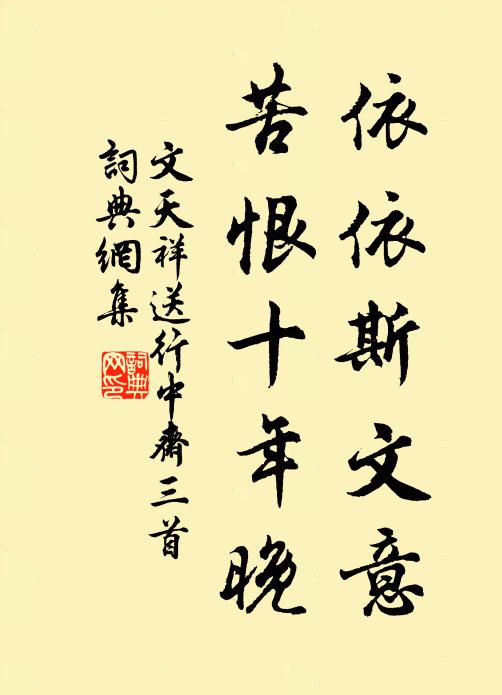 依依斯文意
苦恨十年晚
文天祥送行中齋三首
詞典網集
詞典
网印